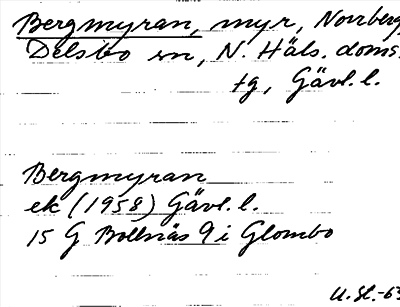 Bergmyran, myr, Norrberg,
Delsbo sn, N. Häls. doms.
tg, Gävl. l.
Bergmyran
ek (1958) Gävl. l.
15 G Bollnäs 9 i Glombo
U. Sl. -63